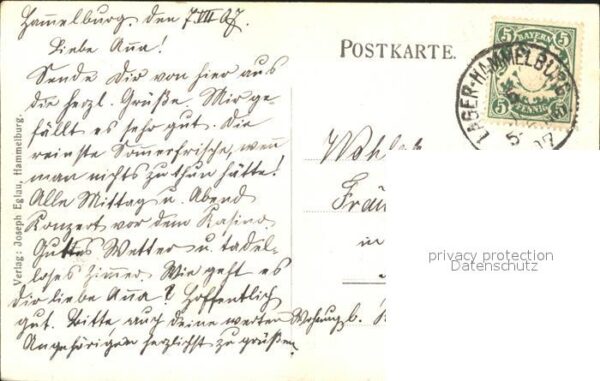 Hammelburg den 7/VII 07.
Liebe Anna!
Sende Dir von hier aus
die herzl. Grüße. Mir ge-
fällt es sehr gut. Die
reinste Sommerfrische, wenn
man nichts zu thun hätte!
Alle Mittag u. Abend
Konzert vor dem Kasino.
Guttes Wetter u. tadel-
loses Zimmer. Wie geht es
Dir liebe Anna? Hoffentlich
gut. Bitte auch deine werten
Angehörigen herzlichst zu grüßen.
Verlag: Joseph Eglau, Hammelburg.
POSTKARTE.
5 BAYERN 5
5 PFENNIG 5
LAGER-HAMMELBURG
Wohl
Fräu
in
Wohnung b.
privacy protection
Datenschutz